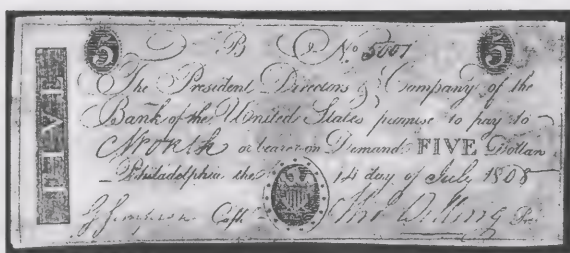 5 B No 5007 5
The President Directors & Company of the
Bank of the United States promise to pay to
or bearer on Demand, FIVE Dollars
Philadelphia the 14 day of July 1808
G Simpson Cashr Tho Willing Prest
FIVE